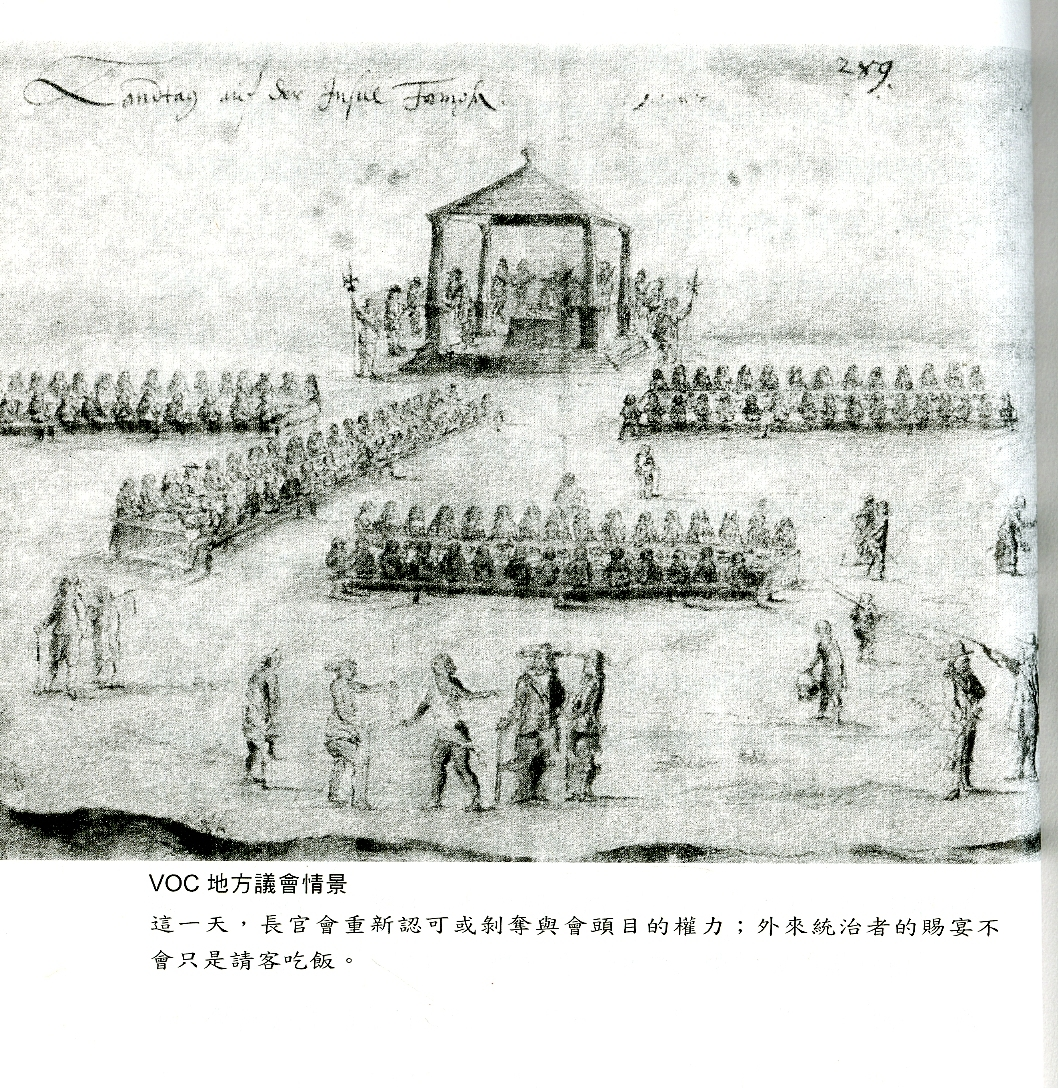 Landtag auf der Insul Formosa.
289.
VOC 地方議會情景
這一天，長官會重新認可或剝奪與會頭目的權力；外來統治者的賜宴不
會只是請客吃飯。